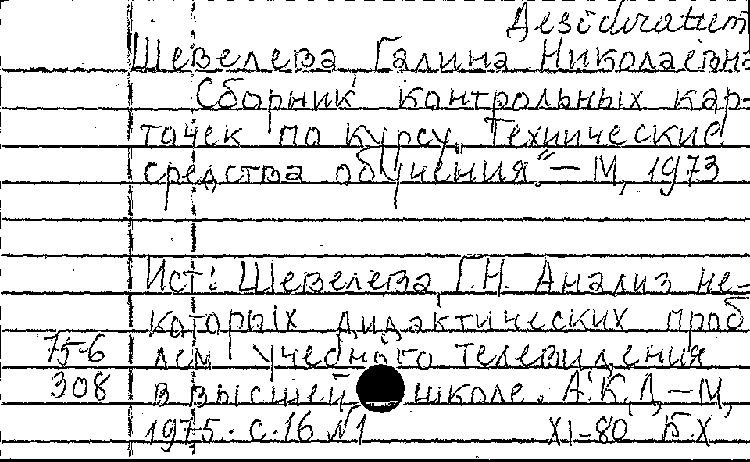 Desideratum
Шевелева, Галина Николаевна
Сборник контрольных кар-
точек по курсу „Технические
средства обучения“. – М, 1973
Ист: Шевелева Г.Н. Анализ не-
которых дидактических проб
75-6 лем учебного телевидения
308 в высшей школе. А.К.Д, – М,
1975. с.16 №1 XI-80 Б.Х